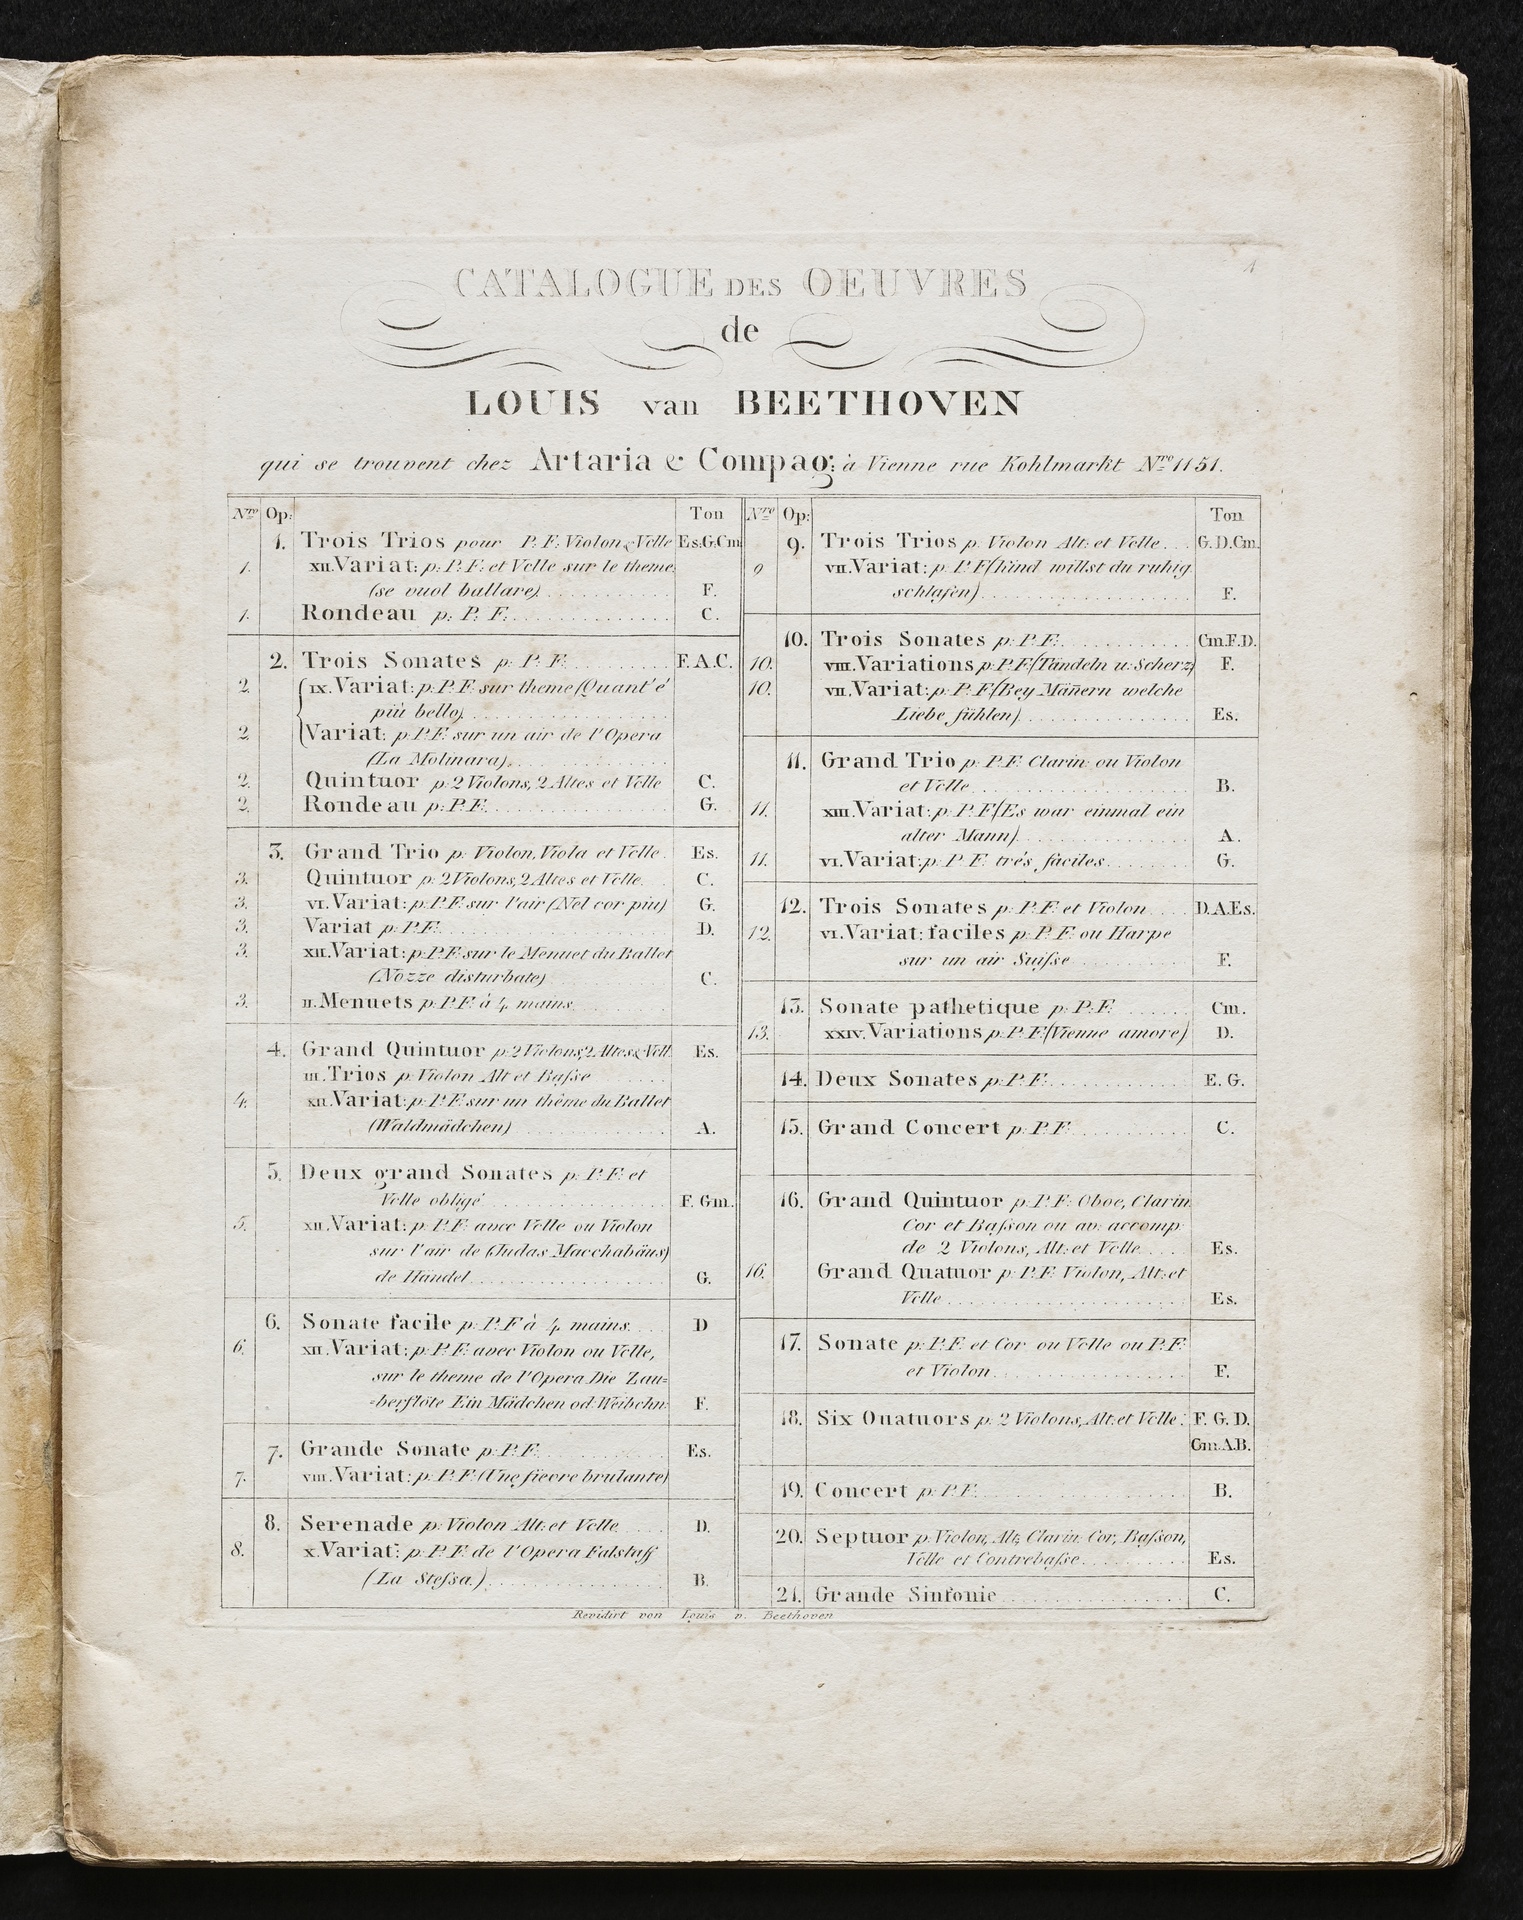 1
CATALOGUE DES OEUVRES
de
LOUIS van BEETHOVEN
qui se trouvent chez Artaria & Compag: à Vienne rue Kohlmarkt Nro 1151.
Nro Op: Ton
1. Trois Trios pour P. F. Violon & Vclle Es.G.Cm
1. XII.Variat: p: P. F. et Vclle sur le theme
(se vuol ballare) F.
1. Rondeau p: P. F. C.
2. Trois Sonates p: P. F. F. A. C.
2. IX.Variat: p: P.F. sur theme (Quant' é
più bello)
2. Variat: p: P.F. sur un air de l'Opera
(La Molinara)
2. Quintuor p: 2 Violons, 2 Altes et Vclle C.
2. Rondeau p: P.F. G.
3. Grand Trio p: Violon, Viola et Vclle. Es.
3. Quintuor p: 2 Violons, 2 Altes et Vclle. C.
3. VI.Variat: p: P.F. sur l'air (Nel cor piu) G.
3. Variat p: P.F. D.
3. XII.Variat: p: P.F. sur le Menuet du Ballet
(Nozze disturbate) C.
3. II.Menuets p: P.F. à 4 mains
4. Grand Quintuor p: 2 Violons, 2 Altes & Vcll. Es.
III.Trios p: Violon Alt et Baſse
4. XII.Variat: p: P.F. sur un thême du Ballet
(Waldmädchen) A.
5. Deux grand Sonates p: P.F. et
Vclle obligé F. Gm.
5. XII.Variat: p: P.F. avec Vclle ou Violon
sur l'air de (Judas Macchabäus)
de Händel G.
6. Sonate facile p: P.F à 4 mains. D
6. XII.Variat: p: P.F. avec Violon ou Vclle,
sur le theme de l'Opera Die Zau=
=berflöte Ein Mädchen od: Weibchn: F.
7. Grande Sonate p: P.F. Es.
7. VIII.Variat: p: P.F. (Une fievre brulante)
8. Serenade p: Violon Alt: et Vclle D.
8. X.Variat: p: P.F. de l'Opera Falstaff
(La Steſsa.) B.
Nro Op: Ton
9. Trois Trios p: Violon Alt: et Vclle G.D.Cm.
9 VII.Variat: p: P.F. (Kind willst du ruhig
schlafen) F.
10. Trois Sonates p: P.F. Cm.F.D.
10. VIII.Variations p: P.F. (Tändeln u: Scherz) F.
10. VII.Variat: p: P.F. (Bey Mäñern welche
Liebe fühlen) Es.
11. Grand Trio p: P.F. Clarin: ou Violon
et Vclle B.
11. XIII.Variat: p: P.F. (Es war einmal ein
alter Mann) A.
11. VI.Variat: p: P.F. trés faciles G.
12. Trois Sonates p: P.F. et Violon D.A.Es.
12. VI.Variat: faciles p: P.F. ou Harpe
sur un air Suiſse F.
13. Sonate pathetique p: P.F. Cm.
13. XXIV.Variations p: P.F. (Vienne amore) D.
14. Deux Sonates p: P.F. E. G.
15. Grand Concert p: P.F. C.
16. Grand Quintuor p: P.F. Oboe, Clarin
Cor et Baſson ou av: accomp:
de 2 Violons, Alt: et Vclle Es.
16. Grand Quatuor p: P.F. Violon, Alt: et
Vclle Es.
17. Sonate p: P.F. et Cor ou Vclle ou P.F.
et Violon F.
18. Six Quatuors p: 2 Violons, Alt: et Vclle: F. G. D.
Cm.A.B.
19. Concert p: P.F. B.
20. Septuor p: Violon, Alt; Clarin: Cor, Baſson,
Vclle et Contrebaſse Es.
21. Grande Sinfonie C.
Revidirt von Louis v. Beethoven